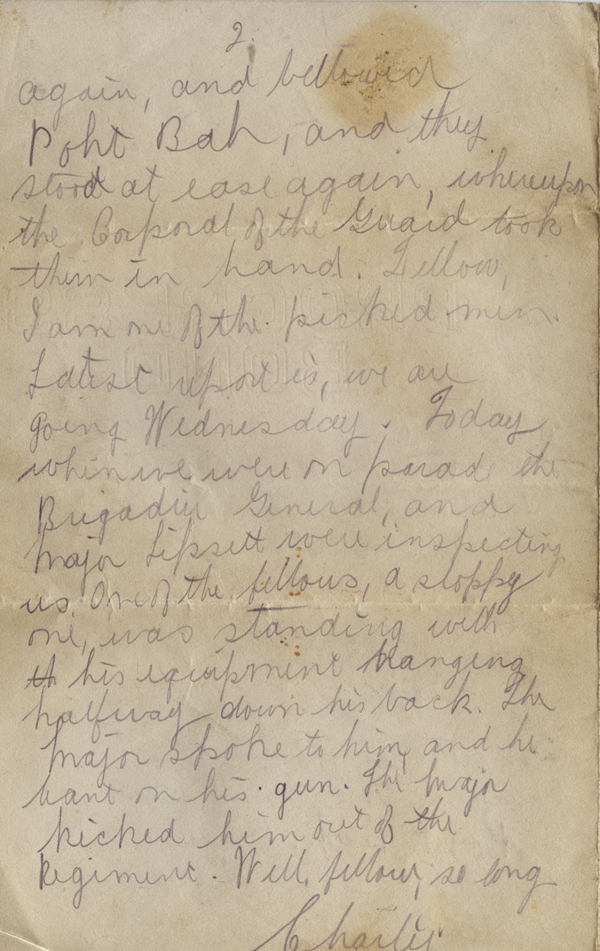 2.
again, and bellowed
Poht Bah, and they
stood at ease again, whereupon
the Corporal of the Guard took
them in hand. Fellow,
I am one of the picked men.
Latest report is, we are
going Wednesday. Today
when we were on parade the
Brigadier General, and
Major Lipsett were inspecting
us. One of the fellows, a sloppy
one, was standing with
his equipment hanging
halfway down his back. The
Major spoke to him, and he
leant on his gun. The Major
kicked him out of the
Regiment. Well, fellow, so long
Charlie